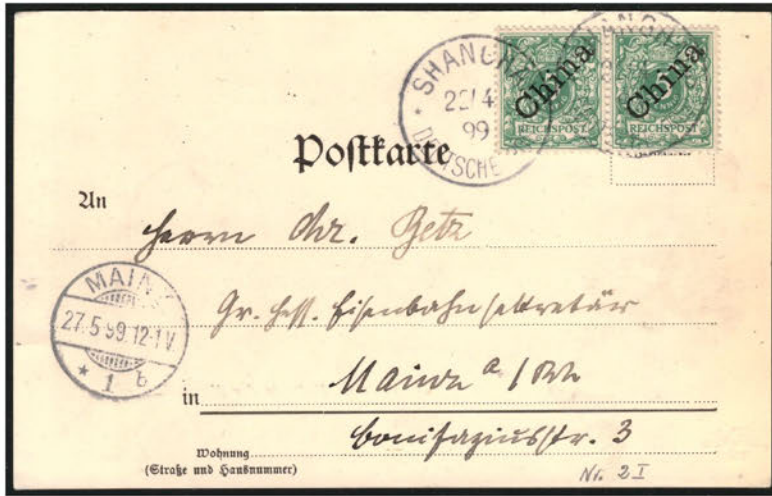 SHANGHA
22/4
99
DEUTSCHE
China China
REICHSPOST REICHSPOST
Postkarte
An
Herrn Chr. Betz
Gr. Hess. Eisenbahnsekretär
MAINZ
27.5.99.12-1V.
* 1 b
in Mainz a/Rh
Bonifaziusstr. 3
Wohnung
(Straße und Hausnummer)
Nr. 2 I